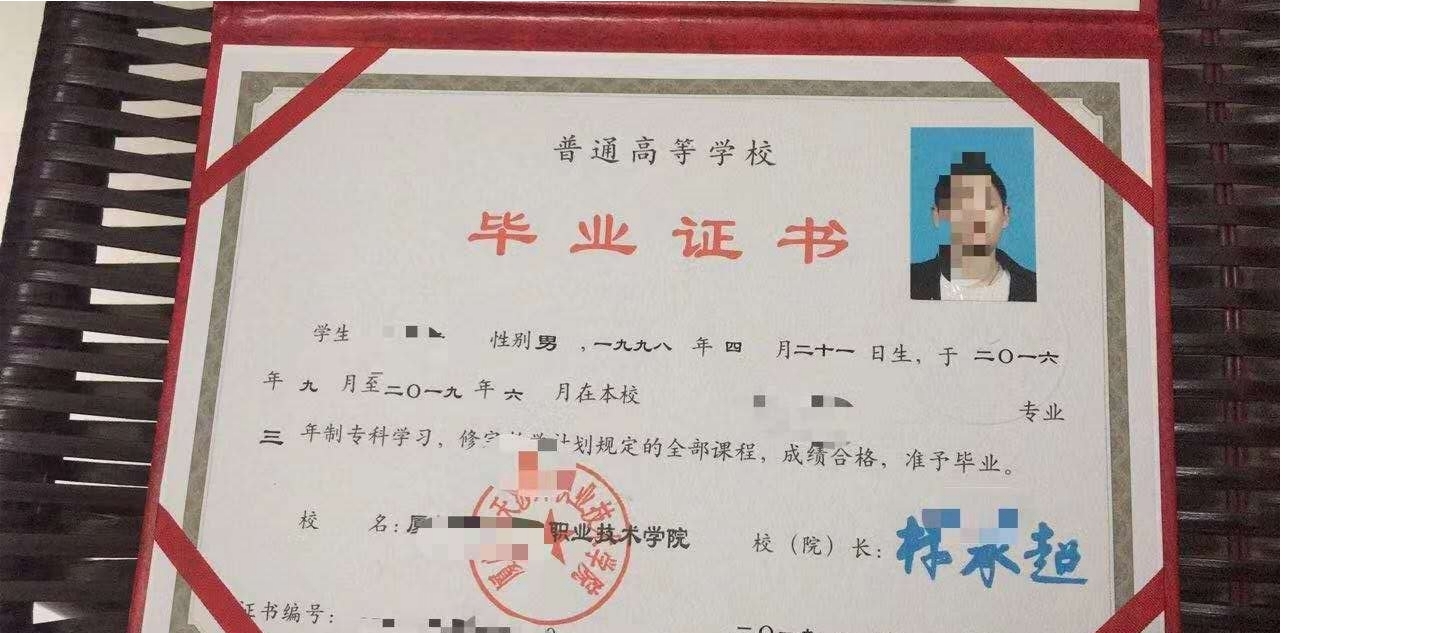 普通高等学校
毕业证书
学生 性别男 ,一九九八 年 四 月二十一 日生, 于 二〇一六
年 九 月至二〇一九 年 六 月在本校 专业
三 年制专科学习, 修完 计划规定的全部课程, 成绩合格, 准予毕业。
校 名: 职业技术学院 校（院）长: 林承超
职业技 学院
证书编号: